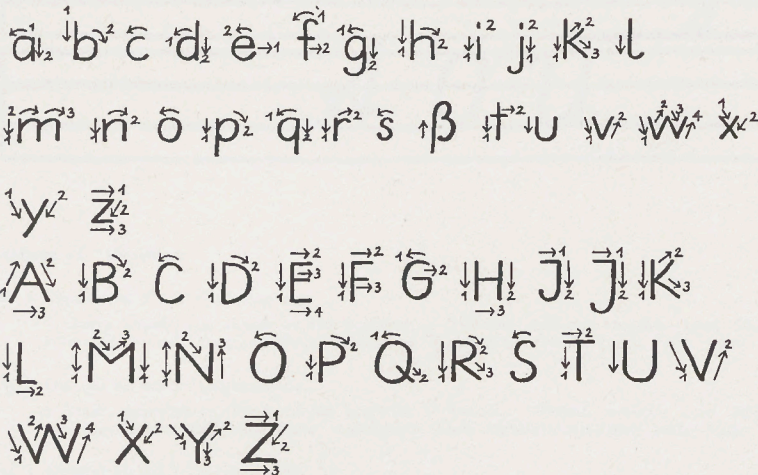 a b c d e f g h i j k l
m n o p q r s β t u v w x
y z
A B C D E F G H J J K
L M N O P Q R S T U V
W X Y Z